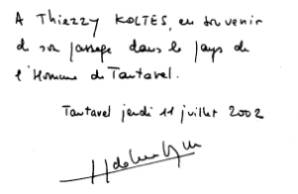 A Thiezzy KOLTES, en souvenir
de son passage dans le pays de
l'Homme de Tautavel.
Tautavel jeudi 11 juillet 2002